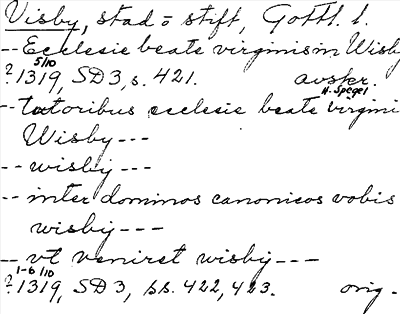 Visby, stad o stift, Gottl. l.
-- Ecclesie beate virginis in Wisby
5/10
? 1319, SD 3, s. 421. avskr.
H. Spegel
-- tutoribus ecclesie beate virgini
Wisby ---
-- wisby ---
-- inter dominos canonicos vobis
wisby ---
-- vt veniret wisby ---
1-6/10
? 1319, SD 3, ss. 422, 423. orig.